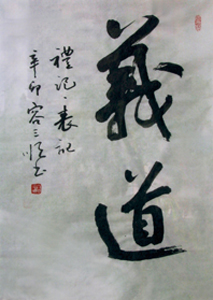 義道
禮記·表記
辛卯容三恆書